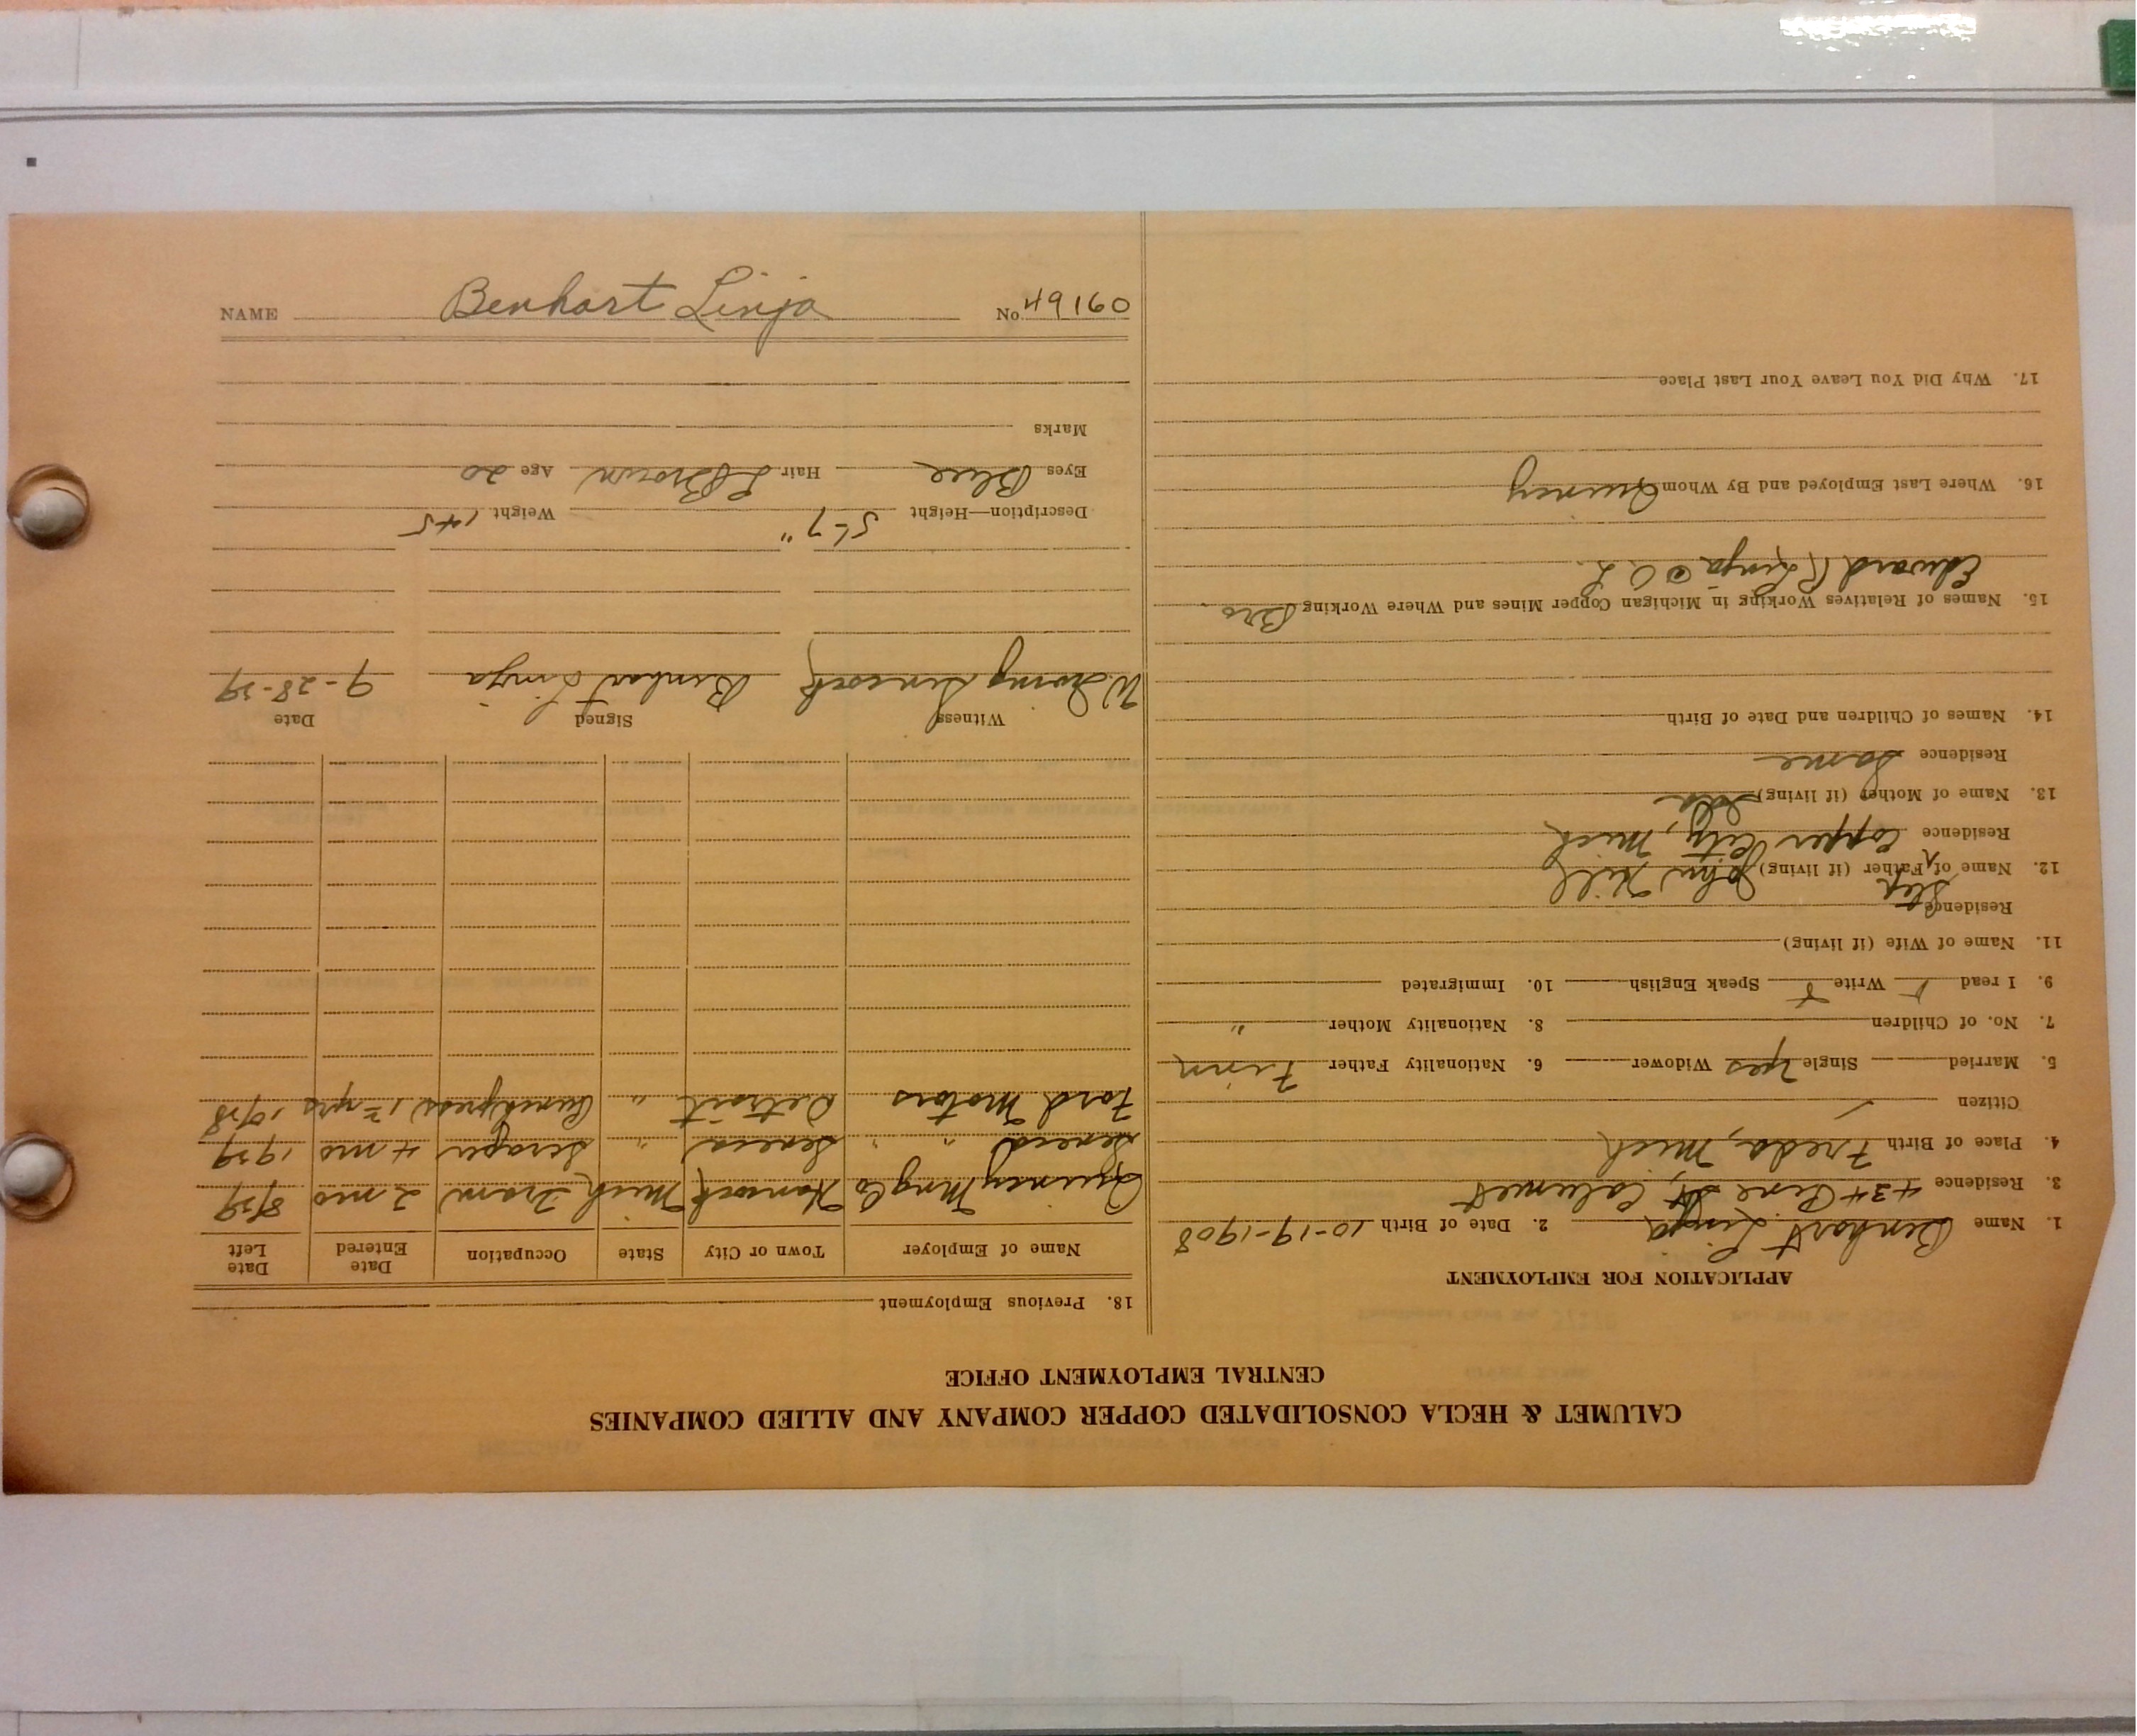 CALUMET & HECLA CONSOLIDATED COPPER COMPANY AND ALLIED COMPANIES
CENTRAL EMPLOYMENT OFFICE
APPLICATION FOR EMPLOYMENT
1. Name Benhart Linja 2. Date of Birth 10-19-1908
3. Residence 434 Pine St, Calumet
4. Place of Birth Freda, Mich
Citizen ✓
5. Married Single Yes Widower 6. Nationality Father Finn
7. No. of Children 8. Nationality Mother "
9. I read Write Speak English 10. Immigrated
11. Name of Wife (if living)
Residence
12. Name of Step Father (if living) John Hill
Residence Copper City, Mich
13. Name of Mother (if living)
Residence Same
14. Names of Children and Date of Birth
15. Names of Relatives Working in Michigan Copper Mines and Where Working Bro
Edward Linja @ O. L.
16. Where Last Employed and By Whom Quincy
17. Why Did You Leave Your Last Place
18. Previous Employment
Name of Employer Town or City State Occupation Date Entered Date Left
Quincy Mng Co Hancock Mich Tram 2 mo 8/29
Seneca " " Seneca " Scraper 4 mo 1929
Ford Motors Detroit " 1 1/2 yrs 10/28
Witness Signed Date
W. Irving Benhart Linja 9-28-29
Description—Height 5'-7" Weight 145
Eyes Blue Hair L Brown Age 20
Marks
NAME Benhart Linja No. 49160